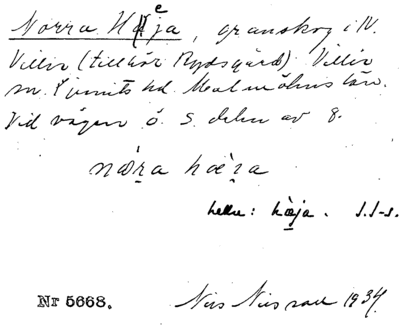 Norra Heja, granskog i N.
Villie (tillhör Rydsgård) Villie
sn. Ljunits hd. Malmöhus län.
Vid vägen ö. s. delen av g.
næra hæra
heller: hæja. S.S-s.
Nr 5668. Nils Nilsson 1934.